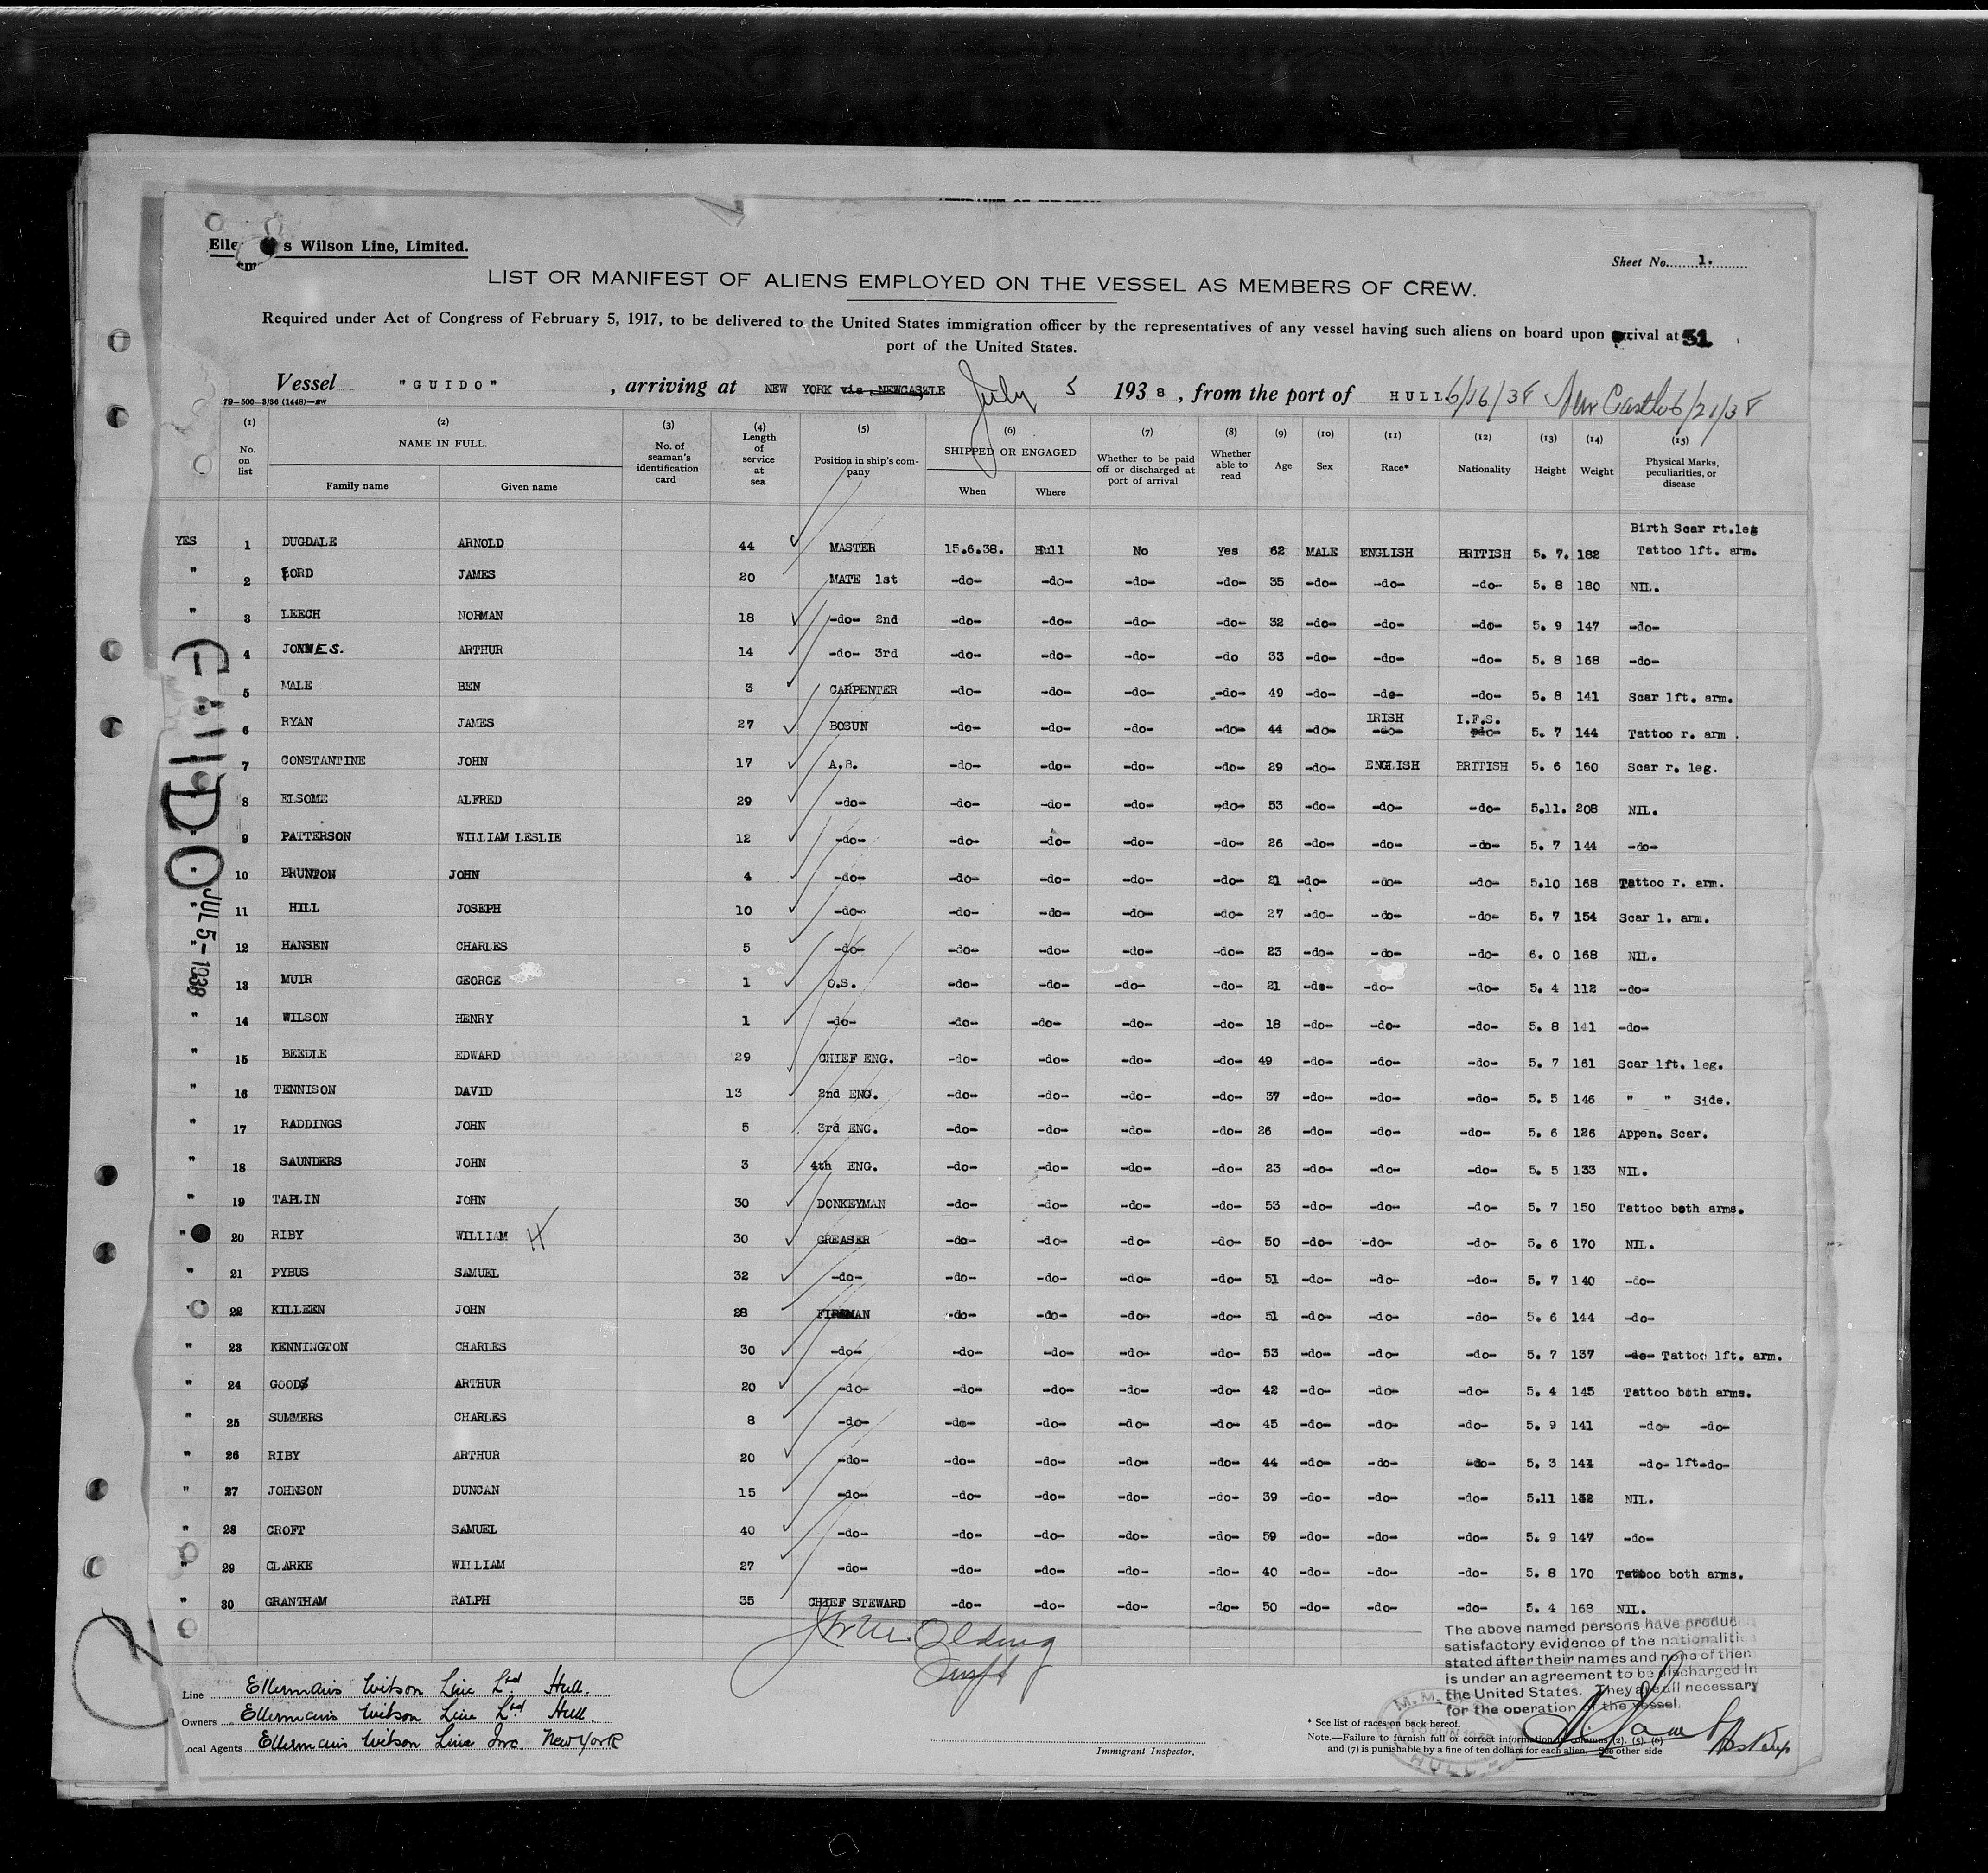 Elle s Wilson Line, Limited.
em
Sheet No. 1.
LIST OR MANIFEST OF ALIENS EMPLOYED ON THE VESSEL AS MEMBERS OF CREW.
Required under Act of Congress of February 5, 1917, to be delivered to the United States immigration officer by the representatives of any vessel having such aliens on board upon arrival at 31
port of the United States.
Vessel "GUIDO", arriving at NEW YORK via NEWCASTLE July 5 1938, from the port of HULL 6/16/38 New Castle 6/21/38
79-500-3/36 (1448)
(1) (2) (3) (4) (5) (6) (7) (8) (9) (10) (11) (12) (13) (14) (15)
No. on list NAME IN FULL. Family name Given name No. of seaman's identification card Length of service at sea Position in ship's company SHIPPED OR ENGAGED When Where Whether to be paid off or discharged at port of arrival Whether able to read Age Sex Race* Nationality Height Weight Physical Marks, peculiarities, or disease
YES 1 DUGDALE ARNOLD 44 MASTER 15.6.38. Hull No Yes 62 MALE ENGLISH BRITISH 5. 7. 182 Birth Scar rt.leg Tattoo lft. arm.
" 2 FORD JAMES 20 MATE 1st -do- -do- -do- -do- 35 -do- -do- -do- 5. 8 180 NIL.
" 3 LEECH NORMAN 18 -do- 2nd -do- -do- -do- -do- 32 -do- -do- -do- 5. 9 147 -do-
4 JONES. ARTHUR 14 -do- 3rd -do- -do- -do- -do 33 -do- -do- -do- 5. 8 168 -do-
5 MALE BEN 3 CARPENTER -do- -do- -do- -do- 49 -do- -do- -do- 5. 8 141 Scar lft. arm.
6 RYAN JAMES 27 BOSUN -do- -do- -do- -do- 44 -do- IRISH -do- I.F.S. -do- 5. 7 144 Tattoo r. arm.
7 CONSTANTINE JOHN 17 A.B. -do- -do- -do- -do- 29 -do- ENGLISH BRITISH 5. 6 160 Scar r. leg.
8 ELSOME ALFRED 29 -do- -do- -do- -do- -do- 53 -do- -do- -do- 5.11. 208 NIL.
9 PATTERSON WILLIAM LESLIE 12 -do- -do- -do- -do- -do- 26 -do- -do- -do- 5. 7 144 -do-
10 BRUNTON JOHN 4 -do- -do- -do- -do- -do- 21 -do- -do- -do- 5.10 168 Tattoo r. arm.
11 HILL JOSEPH 10 -do- -do- -do- -do- -do- 27 -do- -do- -do- 5. 7 154 Scar l. arm.
12 HANSEN CHARLES 5 -do- -do- -do- -do- -do- 23 -do- -do- -do- 6. 0 168 NIL.
13 MUIR GEORGE 1 O.S. -do- -do- -do- -do- 21 -do- -do- -do- 5. 4 112 -do-
" 14 WILSON HENRY 1 -do- -do- -do- -do- -do- 18 -do- -do- -do- 5. 8 141 -do-
" 15 BEEDLE EDWARD 29 CHIEF ENG. -do- -do- -do- -do- 49 -do- -do- -do- 5. 7 161 Scar lft. leg.
" 16 TENNISON DAVID 13 2nd ENG. -do- -do- -do- -do- 37 -do- -do- -do- 5. 5 146 " " Side.
" 17 RADDINGS JOHN 5 3rd ENG. -do- -do- -do- -do- 26 -do- -do- -do- 5. 6 126 Appen. Scar.
" 18 SAUNDERS JOHN 3 4th ENG. -do- -do- -do- -do- 23 -do- -do- -do- 5. 5 133 NIL.
" 19 TAPLIN JOHN 30 DONKEYMAN -do- -do- -do- -do- 53 -do- -do- -do- 5. 7 150 Tattoo both arms.
" 20 RIBY WILLIAM H 30 GREASER -do- -do- -do- -do- 50 -do- -do- -do- 5. 6 170 NIL.
" 21 PYBUS SAMUEL 32 -do- -do- -do- -do- -do- 51 -do- -do- -do- 5. 7 140 -do-
22 KILLEEN JOHN 28 FIREMAN -do- -do- -do- -do- 51 -do- -do- -do- 5. 6 144 -do-
" 23 KENNINGTON CHARLES 30 -do- -do- -do- -do- -do- 53 -do- -do- -do- 5. 7 137 -do- Tattoo lft. arm.
" 24 GOODS ARTHUR 20 -do- -do- -do- -do- -do- 42 -do- -do- -do- 5. 4 145 Tattoo both arms.
" 25 SUMMERS CHARLES 8 -do- -do- -do- -do- -do- 45 -do- -do- -do- 5. 9 141 -do- -do-
" 26 RIBY ARTHUR 20 -do- -do- -do- -do- -do- 44 -do- -do- -do- 5. 3 144 -do- lft-do-
" 27 JOHNSON DUNCAN 15 -do- -do- -do- -do- -do- 39 -do- -do- -do- 5.11 132 NIL.
" 28 CROFT SAMUEL 40 -do- -do- -do- -do- -do- 59 -do- -do- -do- 5. 9 147 -do-
" 29 CLARKE WILLIAM 27 -do- -do- -do- -do- -do- 40 -do- -do- -do- 5. 8 170 Tattoo both arms.
" 30 GRANTHAM RALPH 35 CHIEF STEWARD -do- -do- -do- -do- 50 -do- -do- -do- 5. 4 168 NIL.
GUIDO
JUL 5-1938
The above named persons have produced
satisfactory evidence of the nationalities
stated after their names and none of them
is under an agreement to be discharged in
the United States. They are all necessary
for the operation of the vessel.
Line Ellermans Wilson Line Ltd Hull.
Owners Ellermans Wilson Line Ltd Hull.
Local Agents Ellermans Wilson Line Inc. New York
Immigrant Inspector.
* See list of races on back hereof.
Note.—Failure to furnish full or correct information in columns (2), (5), (6)
and (7) is punishable by a fine of ten dollars for each alien. See other side
HULL